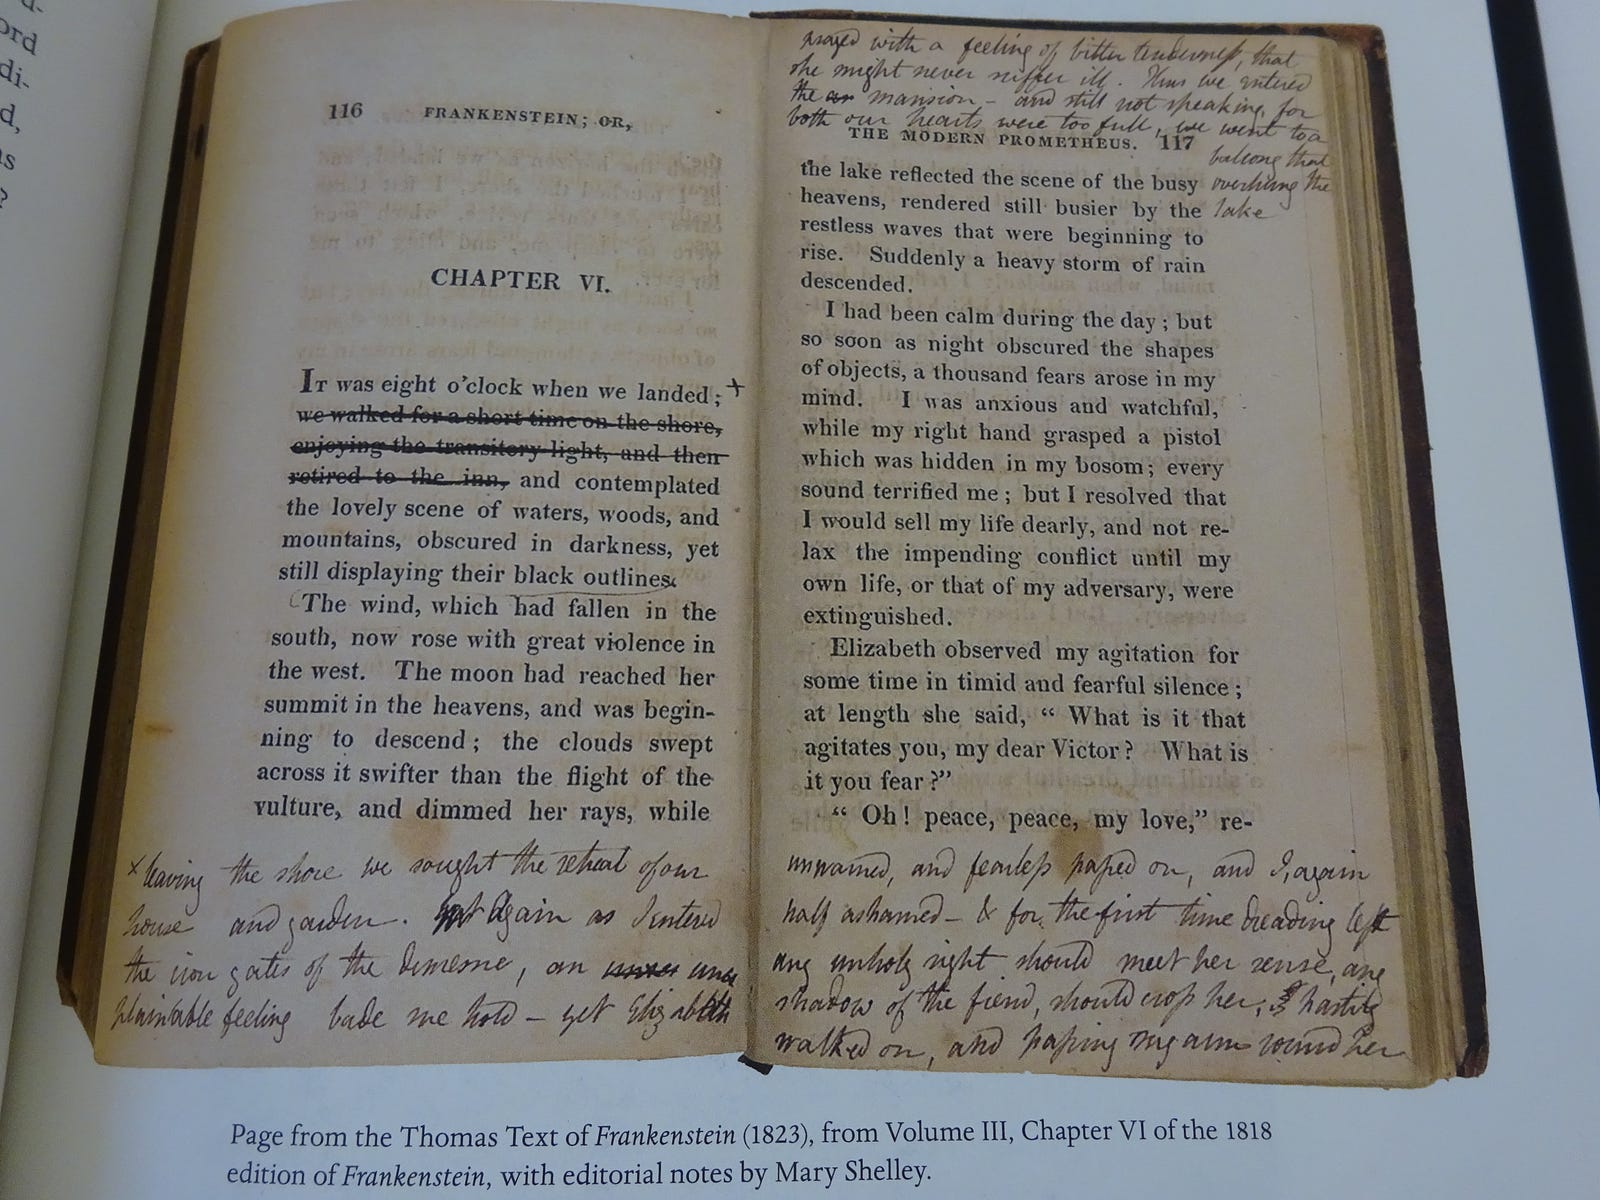 d-
ord
di-
d,
as
?
116 FRANKENSTEIN; OR,
CHAPTER VI.
IT was eight o'clock when we landed; +
we walked for a short time on the shore,
enjoying the transitory light, and then
retired to the inn, and contemplated
the lovely scene of waters, woods, and
mountains, obscured in darkness, yet
still displaying their black outlines.
The wind, which had fallen in the
south, now rose with great violence in
the west. The moon had reached her
summit in the heavens, and was begin-
ning to descend; the clouds swept
across it swifter than the flight of the
vulture, and dimmed her rays, while
x leaving the shore we sought the retreat of our
house and garden. Again as I entered
the iron gates of the demesne, an unex
plainable feeling bade me hold – yet Elizabeth
prayed with a feeling of bitter tenderness, that
she might never suffer ill. Thus we entered
the mansion – and still not speaking, for
both our hearts were too full, we went to a
balcony that
overhung the
lake
THE MODERN PROMETHEUS. 117
the lake reflected the scene of the busy
heavens, rendered still busier by the
restless waves that were beginning to
rise. Suddenly a heavy storm of rain
descended.
I had been calm during the day; but
so soon as night obscured the shapes
of objects, a thousand fears arose in my
mind. I was anxious and watchful,
while my right hand grasped a pistol
which was hidden in my bosom; every
sound terrified me; but I resolved that
I would sell my life dearly, and not re-
lax the impending conflict until my
own life, or that of my adversary, were
extinguished.
Elizabeth observed my agitation for
some time in timid and fearful silence;
at length she said, “ What is it that
agitates you, my dear Victor? What is
it you fear?”
“ Oh! peace, peace, my love,” re-
unwarned, and fearless passed on, and I, again
half ashamed – & for the first time dreading lest
any unholy sight should meet her sense, any
shadow of the fiend, should cross her, hastily
walked on, and passing my arm round her
Page from the Thomas Text of Frankenstein (1823), from Volume III, Chapter VI of the 1818
edition of Frankenstein, with editorial notes by Mary Shelley.